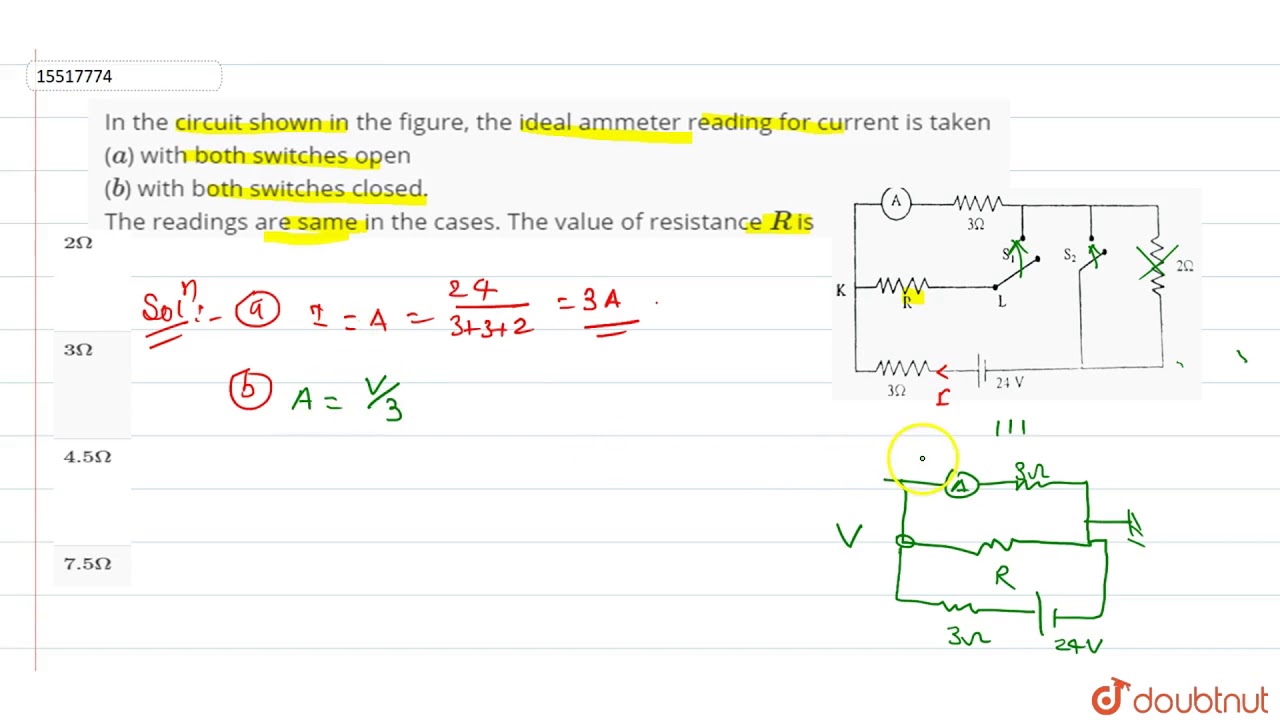 15517774
In the circuit shown in the figure, the ideal ammeter reading for current is taken
(a) with both switches open
(b) with both switches closed.
The readings are same in the cases. The value of resistance R is
2Ω
3Ω
4.5Ω
7.5Ω
A
3Ω
S1
S2
2Ω
K
R
L
3Ω
24 V
I
Solⁿ:- (a) I = A = 24/(3+3+2) = 3A
(b) A = V/3
A
3Ω
V
R
3Ω
24V
doubtnut